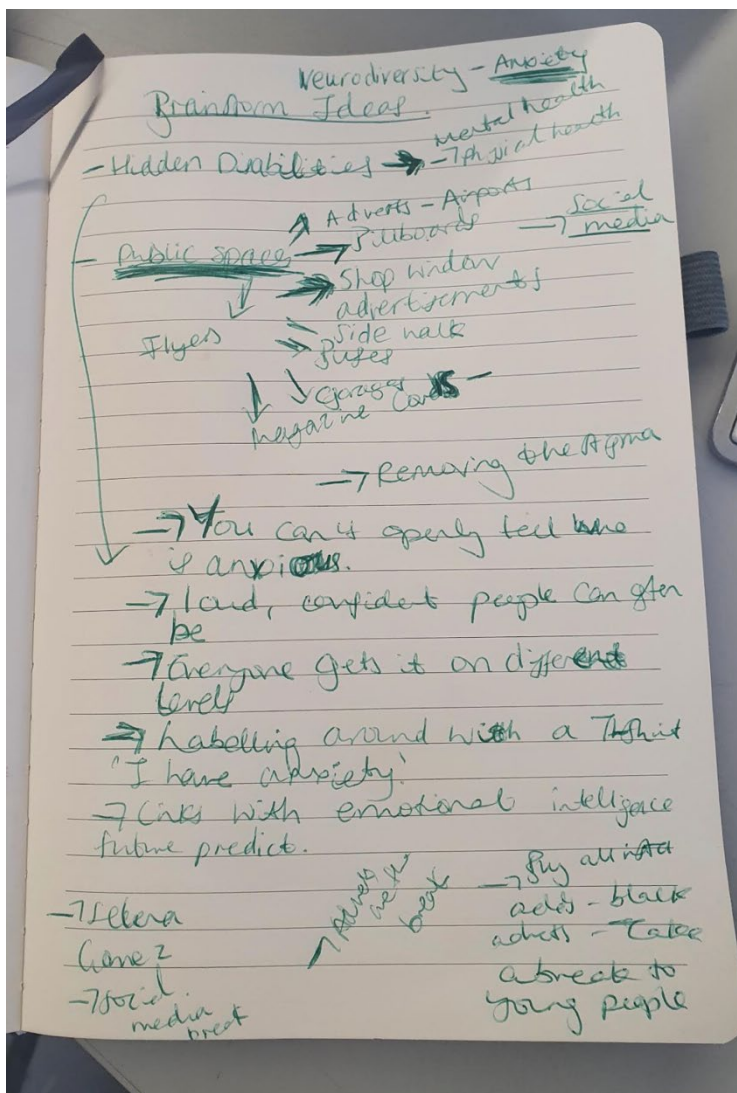 Neurodiversity - Anxiety
Brainstorm Ideas.
- Hidden Disabilities → Mental health
→ physical health
- Public spaces
→ Adverts - Airports
→ Billboards → Social media
→ Shop window
advertisements
Side walk
→ Buses
Flyers
Garages
Magazine Cards
→ Removing the stigma
→ You can't openly tell who
is anxious.
→ loud, confident people can often
be
→ Everyone gets it on different
levels
→ Labelling around with a T-shirt
'I have anxiety'
→ Links with emotional intelligence
future predict.
→ Selena
Gomez
→ social
media break
→ Adverts
are the
break
→ Buy all insta
adds - black
adverts - Take
a break to
young people